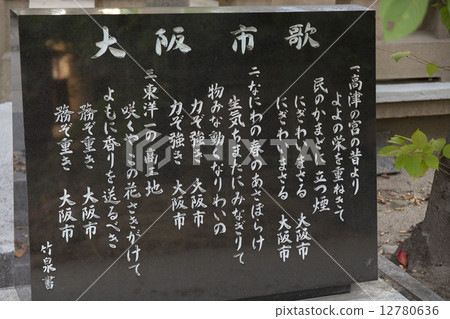 大阪市歌
一、高津の宮の昔より
よよの栄を重ねきて
民のかまどに立つ煙
にぎわいまさる 大阪市
にぎわいまさる 大阪市
二、なにわの春のあさぼらけ
生気ちまたにみなぎりて
物みな動くなりわいの
力ぞ強き 大阪市
力ぞ強き 大阪市
三、東洋一の商工地
咲くやこの花さきがけて
よもに香りを送るべき
務ぞ重き 大阪市
務ぞ重き 大阪市
竹泉書
© 12780636